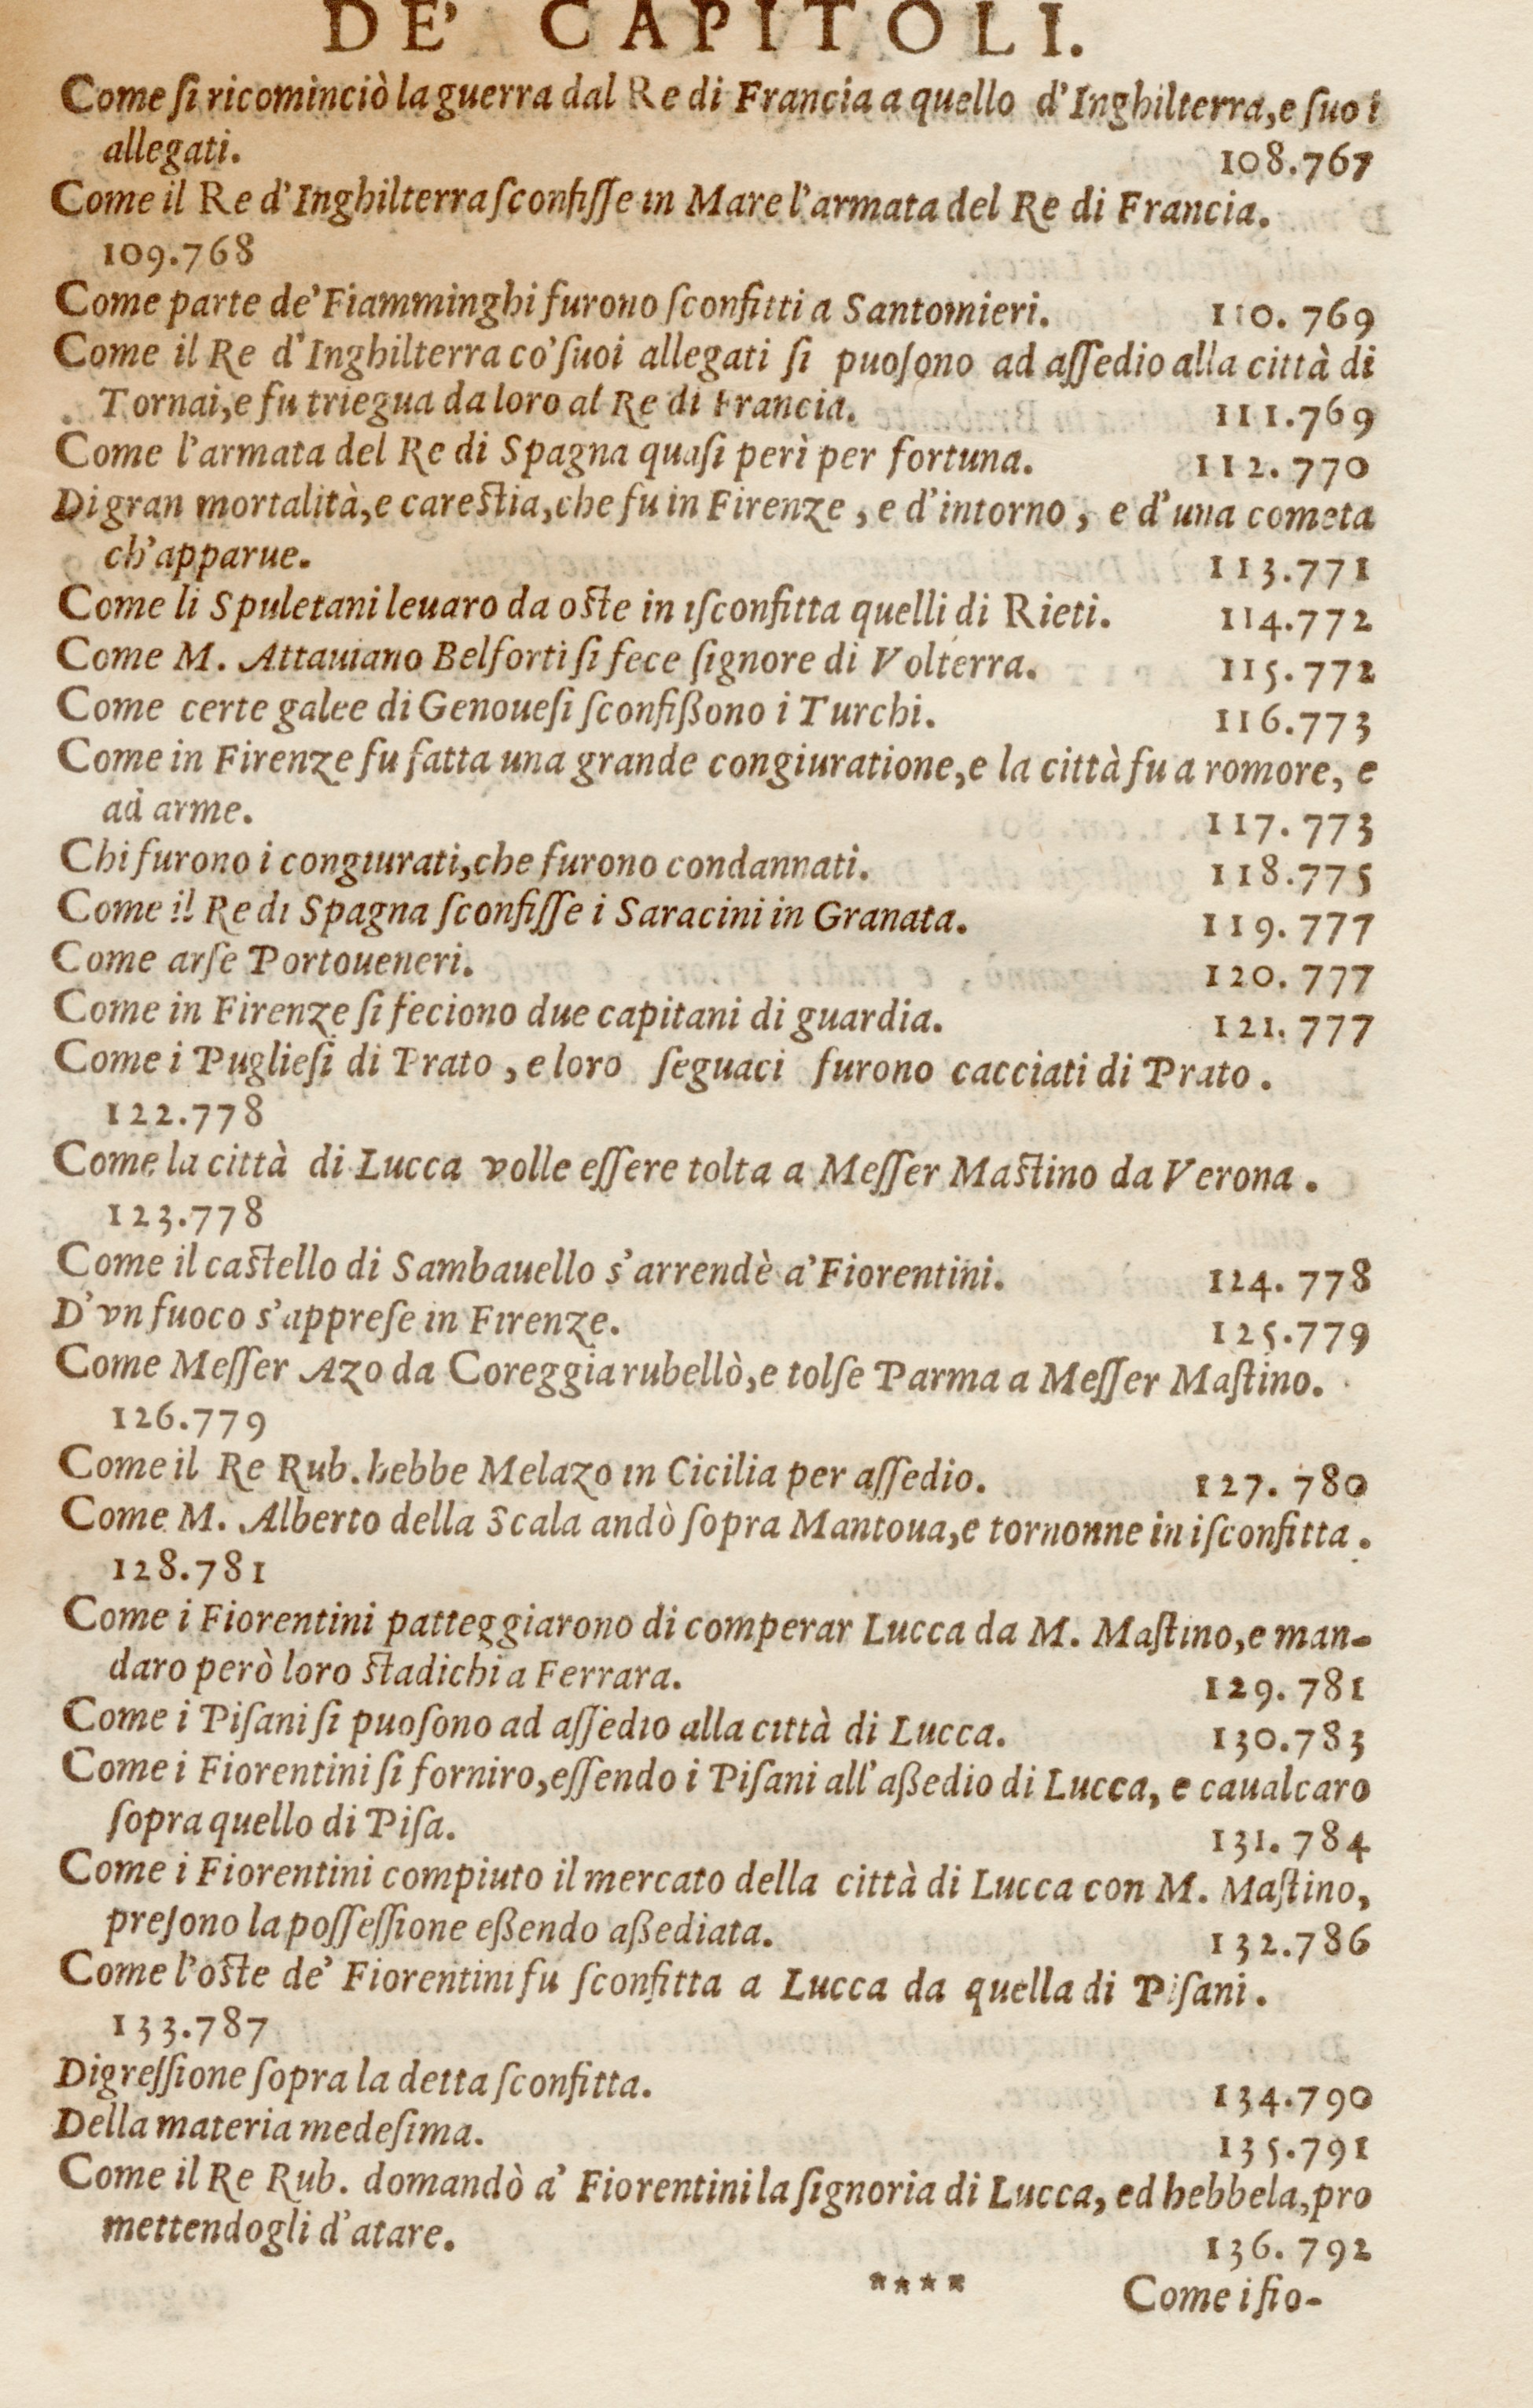 DE' CAPITOLI.
Come ſi ricominciò la guerra dal Re di Francia a quello d'Inghilterra, e ſuoi
allegati. 108.767
Come il Re d'Inghilterra ſconfiſſe in Mare l'armata del Re di Francia.
109.768
Come parte de' Fiamminghi furono ſconfitti a Santomieri. 110. 769
Come il Re d'Inghilterra co' ſuoi allegati ſi puoſono ad aſſedio alla città di
Tornai, e fu triegua da loro al Re di Francia. 111.769
Come l'armata del Re di Spagna quaſi perì per fortuna. 112.770
Di gran mortalità, e careſtia, che fu in Firenze, e d'intorno, e d'una cometa
ch'apparue. 113.771
Come li Spuletani leuaro da oſte in iſconfitta quelli di Rieti. 114.772
Come M. Attauiano Belforti ſi fece ſignore di Volterra. 115.772
Come certe galee di Genoueſi ſconfißono i Turchi. 116.773
Come in Firenze fu fatta una grande congiuratione, e la città fu a romore, e
ad arme. 117. 773
Chi furono i congiurati, che furono condannati. 118.775
Come il Re di Spagna ſconfiſſe i Saracini in Granata. 119. 777
Come arſe Portoueneri. 120. 777
Come in Firenze ſi feciono due capitani di guardia. 121. 777
Come i Puglieſi di Prato, e loro ſeguaci furono cacciati di Prato.
122.778
Come la città di Lucca volle eſſere tolta a Meſſer Maſtino da Verona.
123.778
Come il caſtello di Sambauello s'arrendè a' Fiorentini. 124. 778
D'vn fuoco s'appreſe in Firenze. 125.779
Come Meſſer Azo da Coreggia rubellò, e tolſe Parma a Meſſer Maſtino.
126.779
Come il Re Rub. hebbe Melazo in Cicilia per aſſedio. 127. 780
Come M. Alberto della Scala andò ſopra Mantoua, e tornonne in iſconfitta.
128.781
Come i Fiorentini patteggiarono di comperar Lucca da M. Maſtino, e man-
daro però loro ſtadichi a Ferrara. 129. 781
Come i Piſani ſi puoſono ad aſſedio alla città di Lucca. 130.783
Come i Fiorentini ſi forniro, eſſendo i Piſani all'aßedio di Lucca, e caualcaro
ſopra quello di Piſa. 131. 784
Come i Fiorentini compiuto il mercato della città di Lucca con M. Maſtino,
preſono la poſſeſſione eßendo aßediata. 132.786
Come l'oſte de' Fiorentini fu ſconfitta a Lucca da quella di Piſani.
133.787
Digreſſione ſopra la detta ſconfitta. 134.790
Della materia medeſima. 135.791
Come il Re Rub. domandò a' Fiorentini la ſignoria di Lucca, ed hebbela, pro
mettendogli d'atare. 136. 792
**** Come i fio-